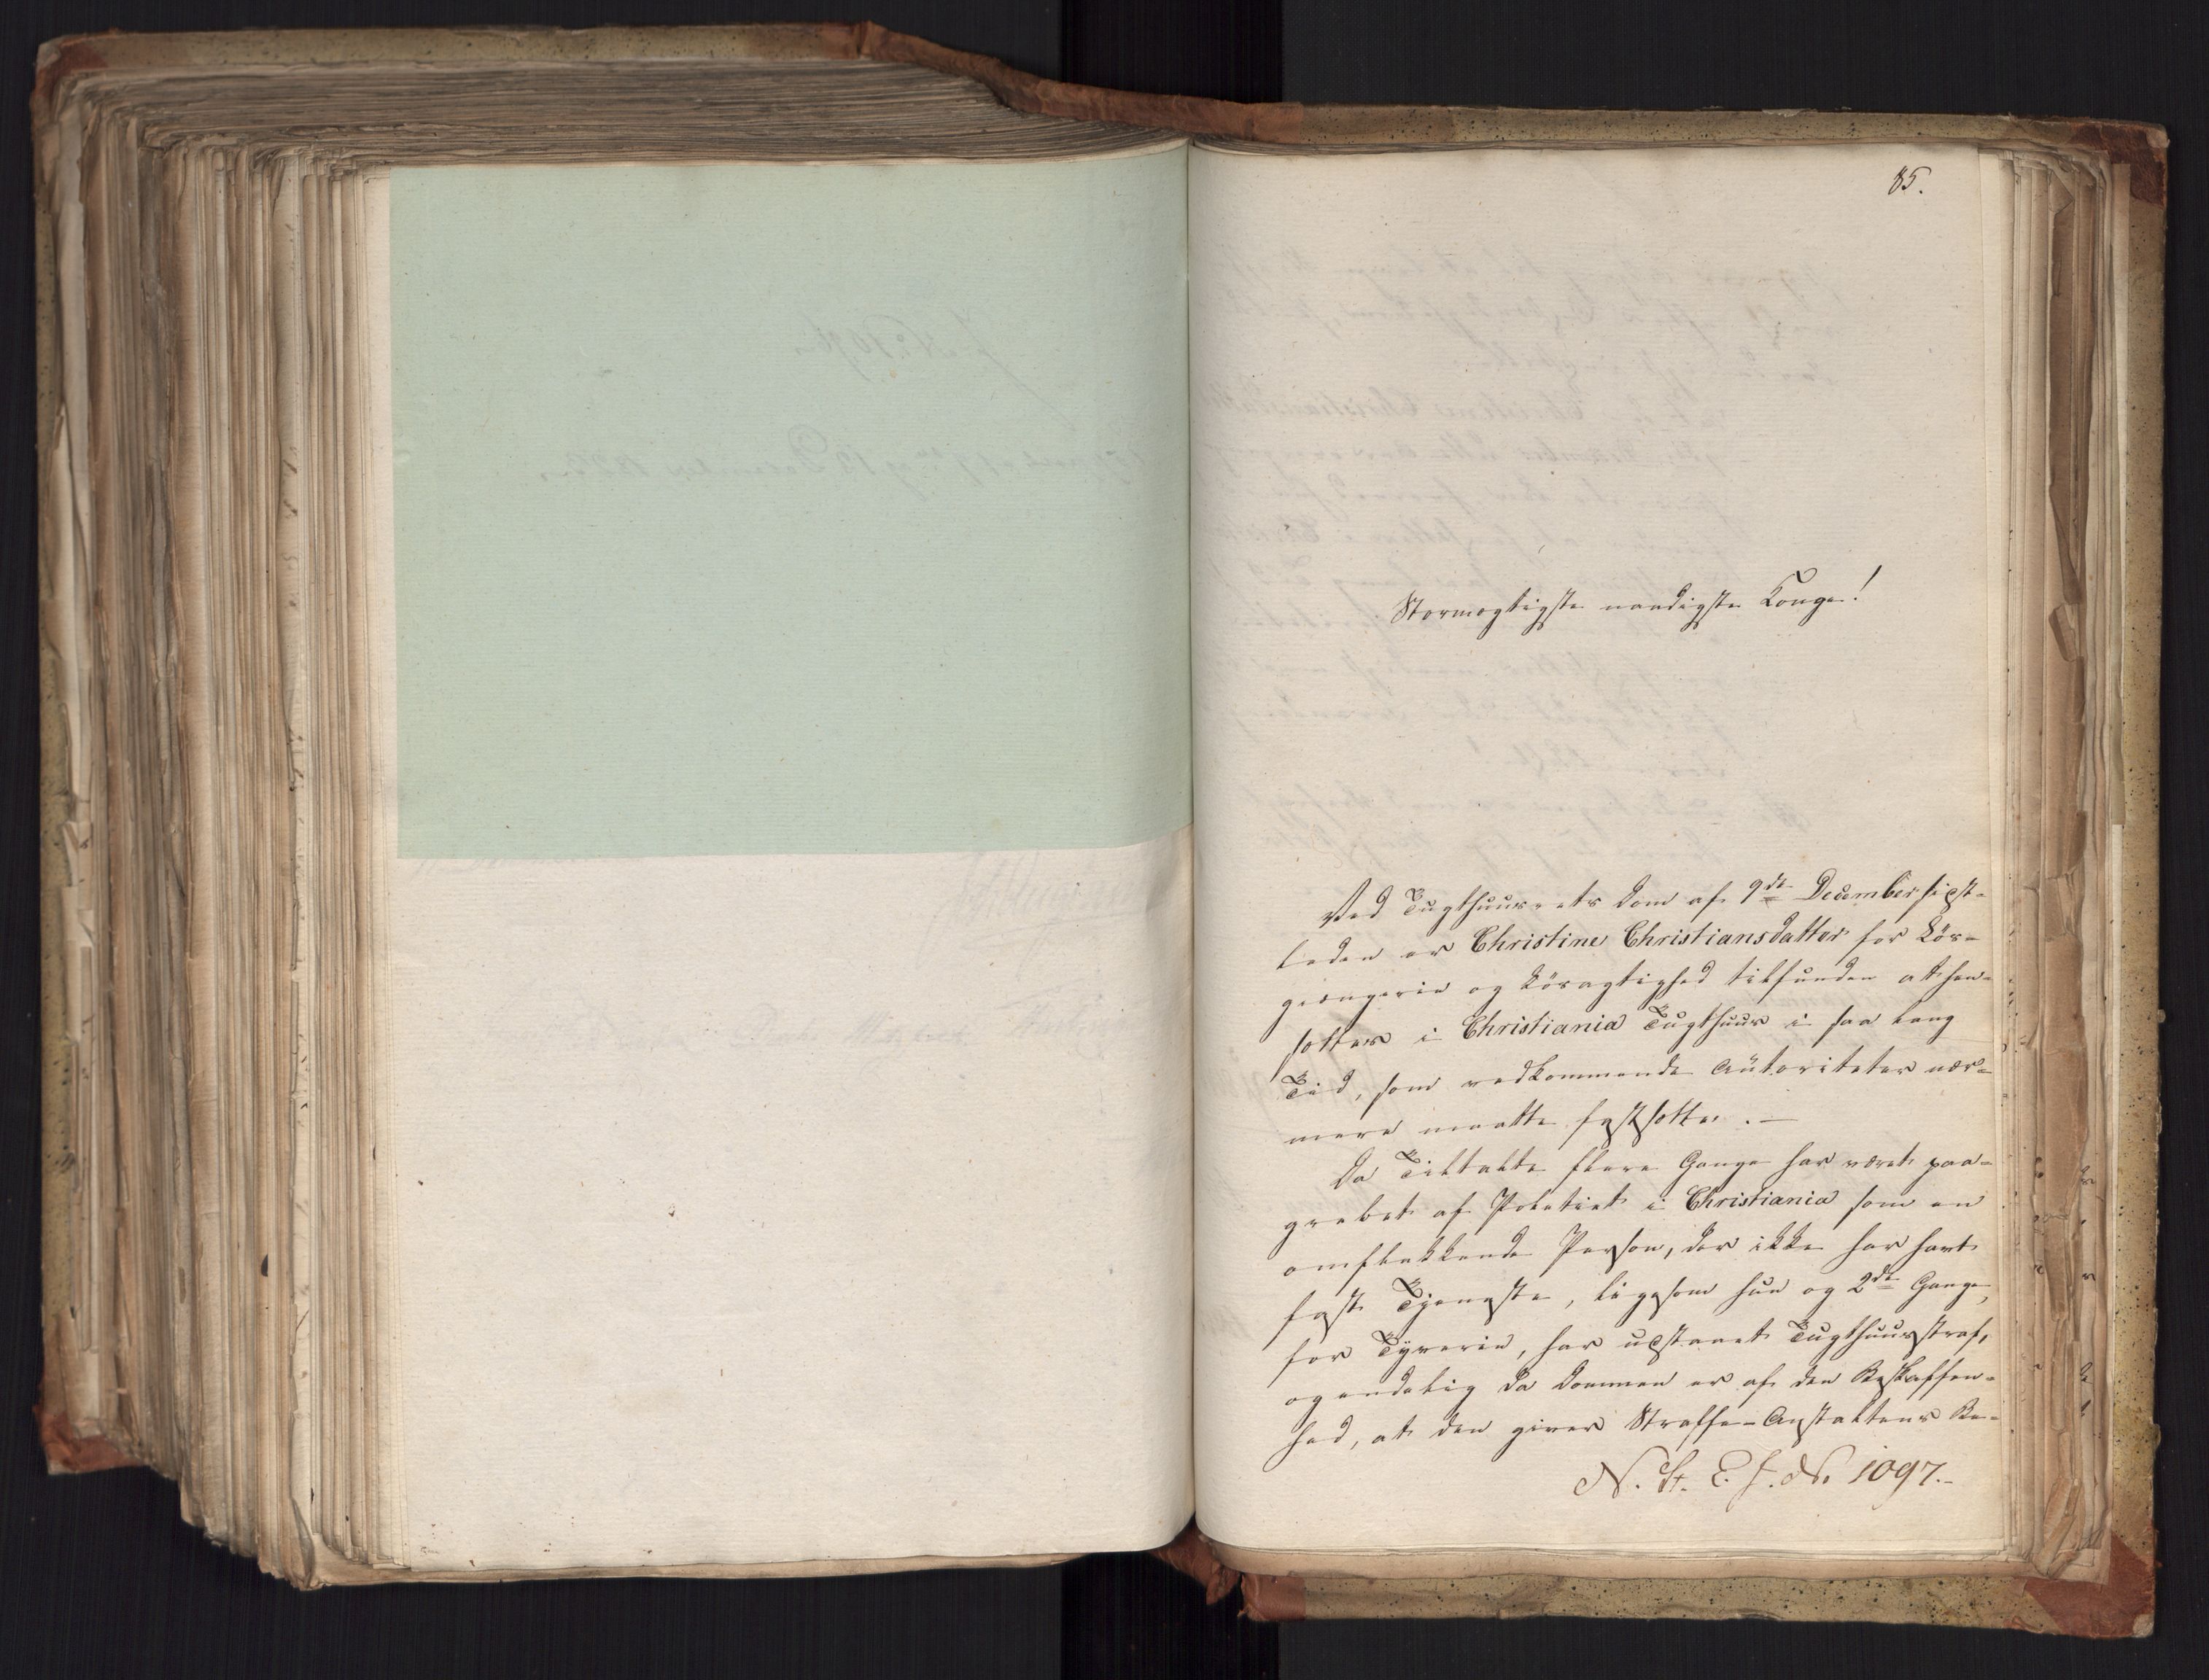 85.
Stormægtigste naadigste Konge!
Ved Tugthuusrets Dom af 9de December sidst-
leden er Christine Christiansdatter for Løs-
gængerie og Løsagtighed tilfunden at hen-
sættes i Christiania Tugthuus i saa lang
Tid, som vedkommende Autoriteter nær-
mere maatte fastsætte. —
Da Tiltalte flere Gange har været paa-
grebet af Politiet i Christiania som en
omflakkende Person, der ikke har havt
fast Tjeneste, ligesom hun og 2de Gange,
for Tyverie, har udstaaet Tugthuusstraf,
og endelig da Dommen er af den Beskaffen-
hed, at den giver Straffe-Anstaltens Be-
N. St. E. J. No 1097.-